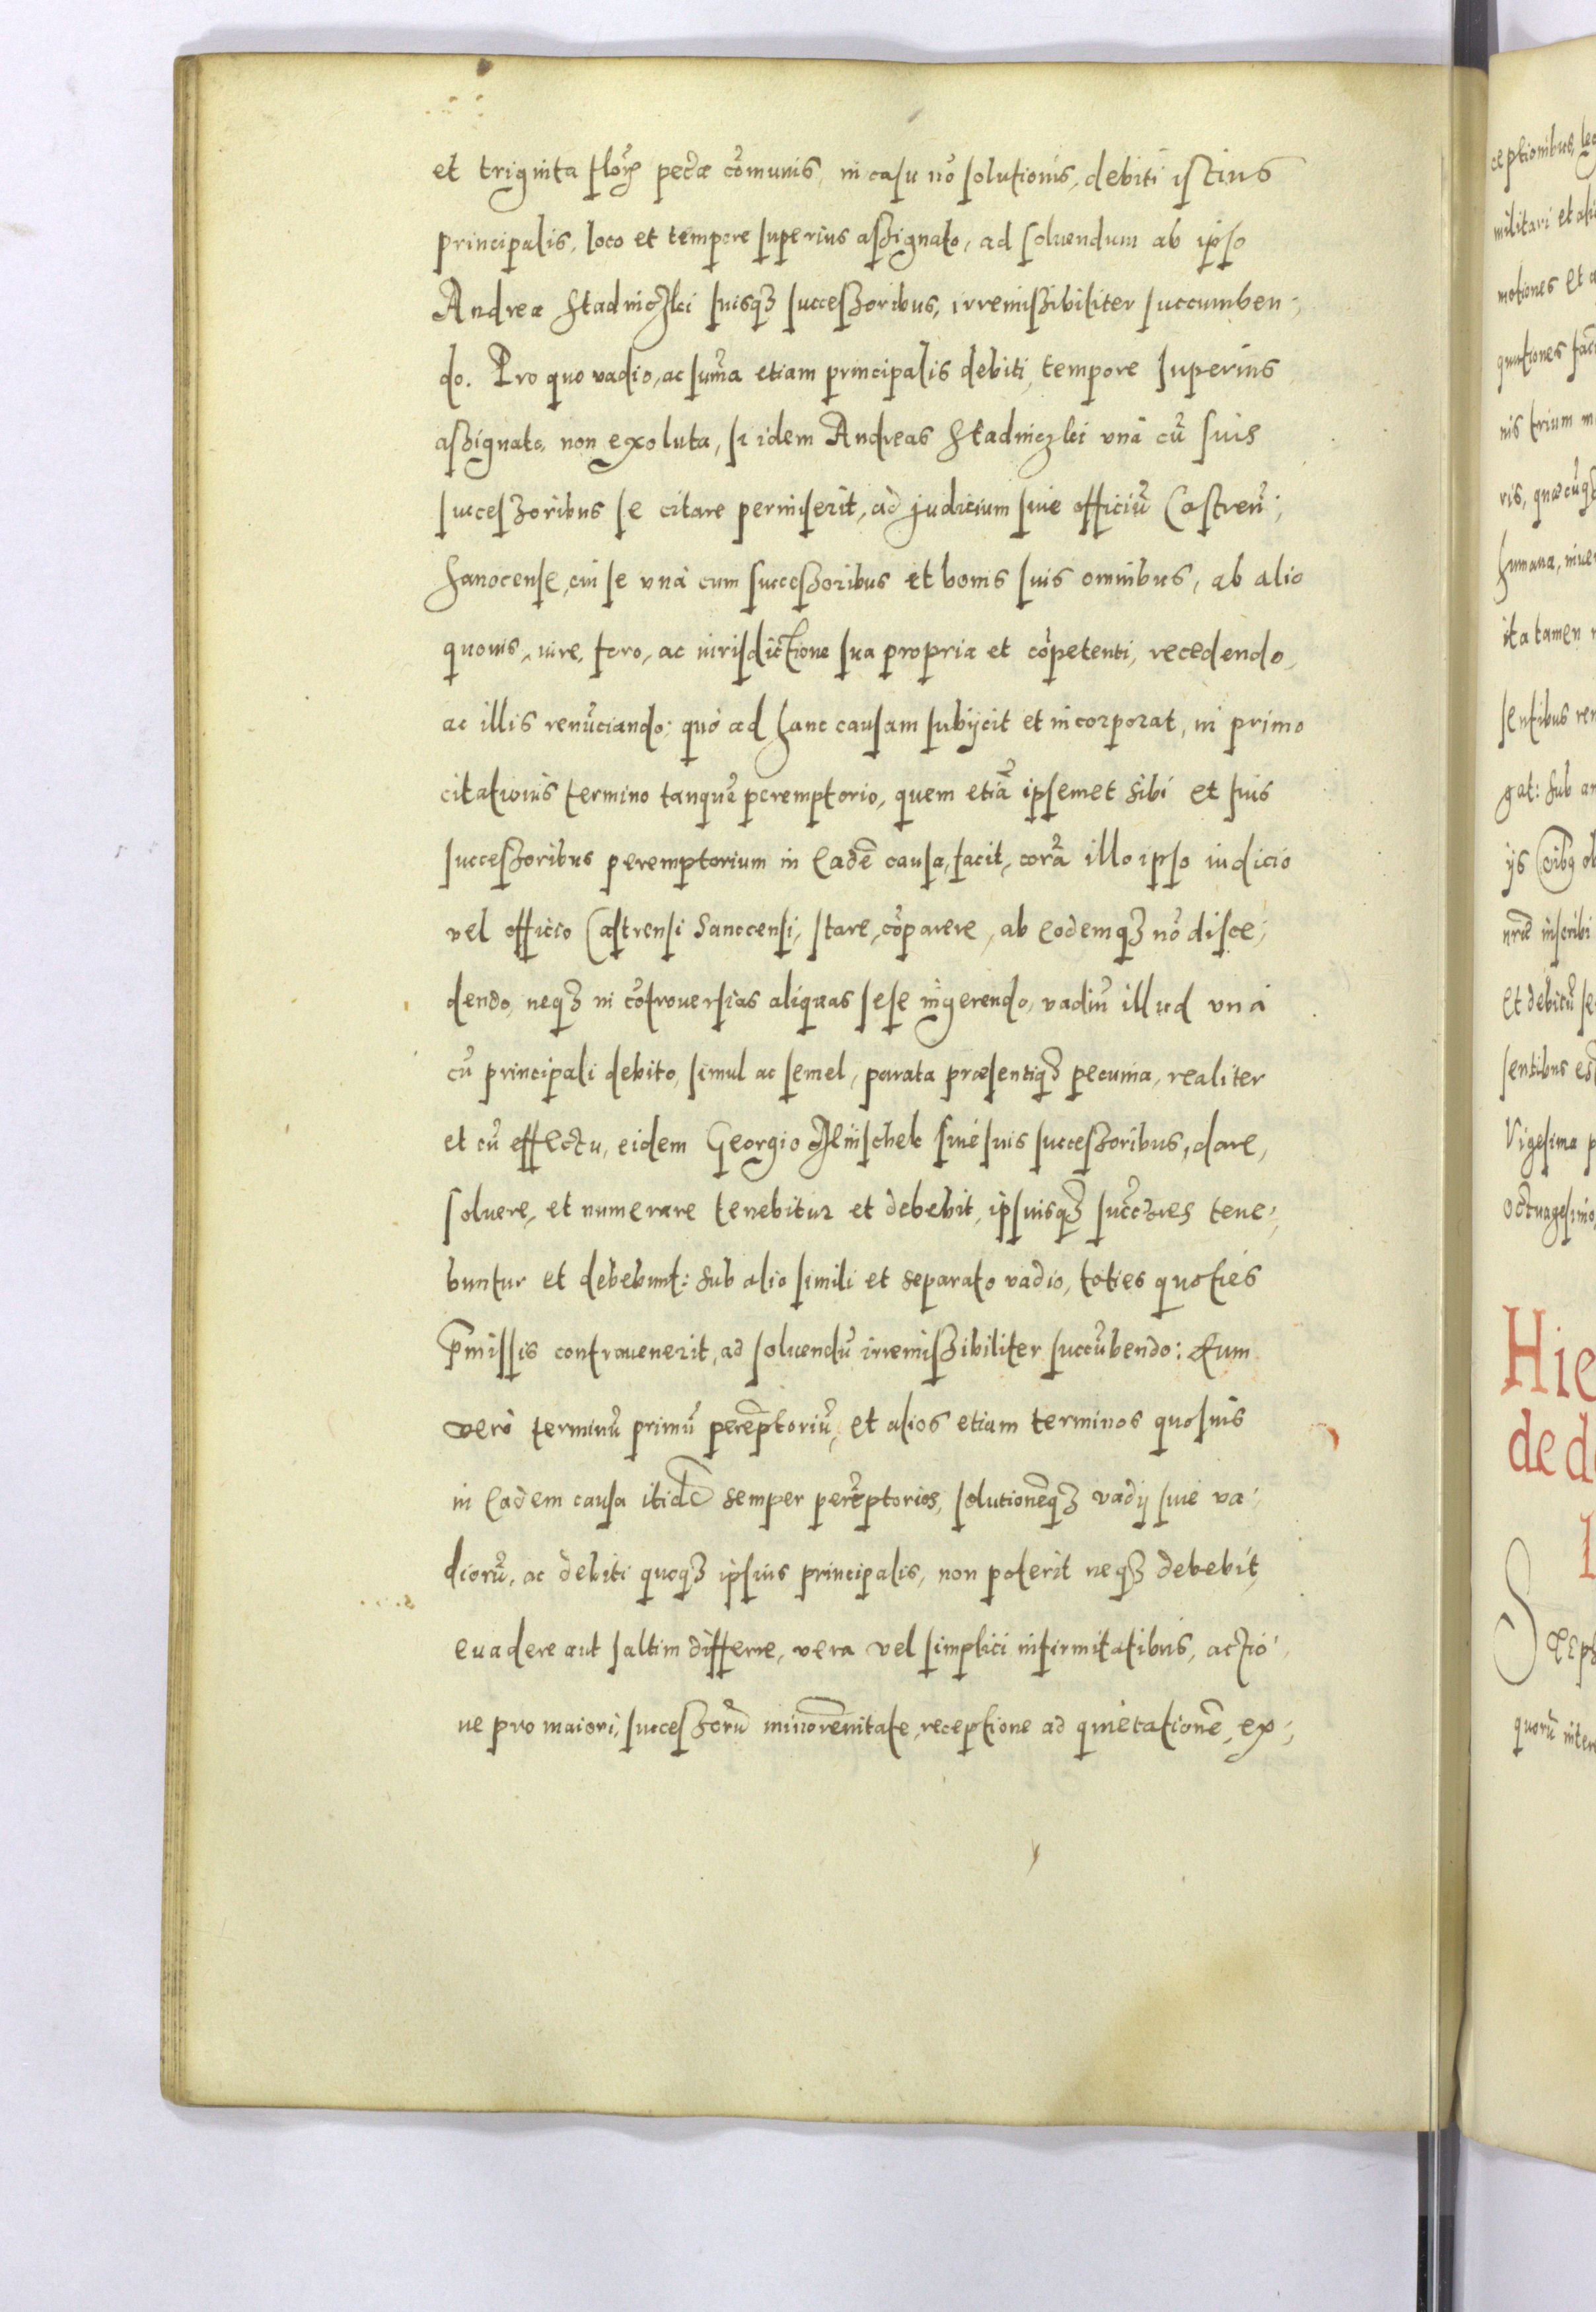 et triginta floꝝ pecūæ cōmunis, in casu nō solutionis, debiti istius
principalis, loco et tempore superius aßignato, ad soluendum ab ipso
Andrea Stadniczki suisqꝫ succeßoribus, irremißibiliter succumben-
do. Pro quo vadio, ac sum̄a etiam principalis debiti, tempore superius
aßignato, non exoluta, si idem Andreas Stadniczki vnà cū suis
succeßoribus se citare permiserit, ad judicium siue officiū Castren̄-
Sanocense, cui se vnà cum succeßoribus et bonis suis omnibus, ab alio
quouis, iure, foro, ac iurisdictione sua propria et cōpetenti, recedendo,
ac illis renūciando: quò ad hanc causam subijcit et incorporat, in primo
citationis termino tanquē peremptorio, quem etiā ipsemet sibi et suis
succeßoribus peremptorium in eadē causa, facit, corā illo ipso iudicio
vel officio Castrensi Sanocensi, stare, cōparere, ab eodemqꝫ nō disce-
dendo, neqꝫ in cōtrouersias aliquas sese ingerendo, vadiū illud vnà
cū principali debito, simul ac semel, parata præsentiqꝫ pecunia, realiter
et cū effectu, eidem Georgio Mnischek siue suis succeßoribus, dare,
soluere, et numerare tenebitur et debebit, ipsiusqꝫ succ̄ores tene-
buntur et debebunt: sub alio simili et separato vadio, toties quoties
p̄missis contrauenerit, ad soluendū irremißibiliter succūbendo: Eum
verò terminū primū perēptoriū, et alios etiam terminos quosuis
in eadem causa itidē semper perēptorios, solutionēqꝫ vadij siue va-
diorū, ac debiti quoqꝫ ipsius principalis, non poterit neqꝫ debebit,
euadere aut saltim differre, vera vel simplici infirmitatibus, actio-
ne pro maiori, succeßorū minorēnitate, receptione ad quietationē, ex-
ceptionibus,
militari et
motiones et
quationes
nis trium
ris, quæcūqꝫ
humana,
ita tamen
sentibus
gat: sub
ijs
inscribi
et debitū
sentibus
Vigesima
octuagesimo,
Hie
de
quorū